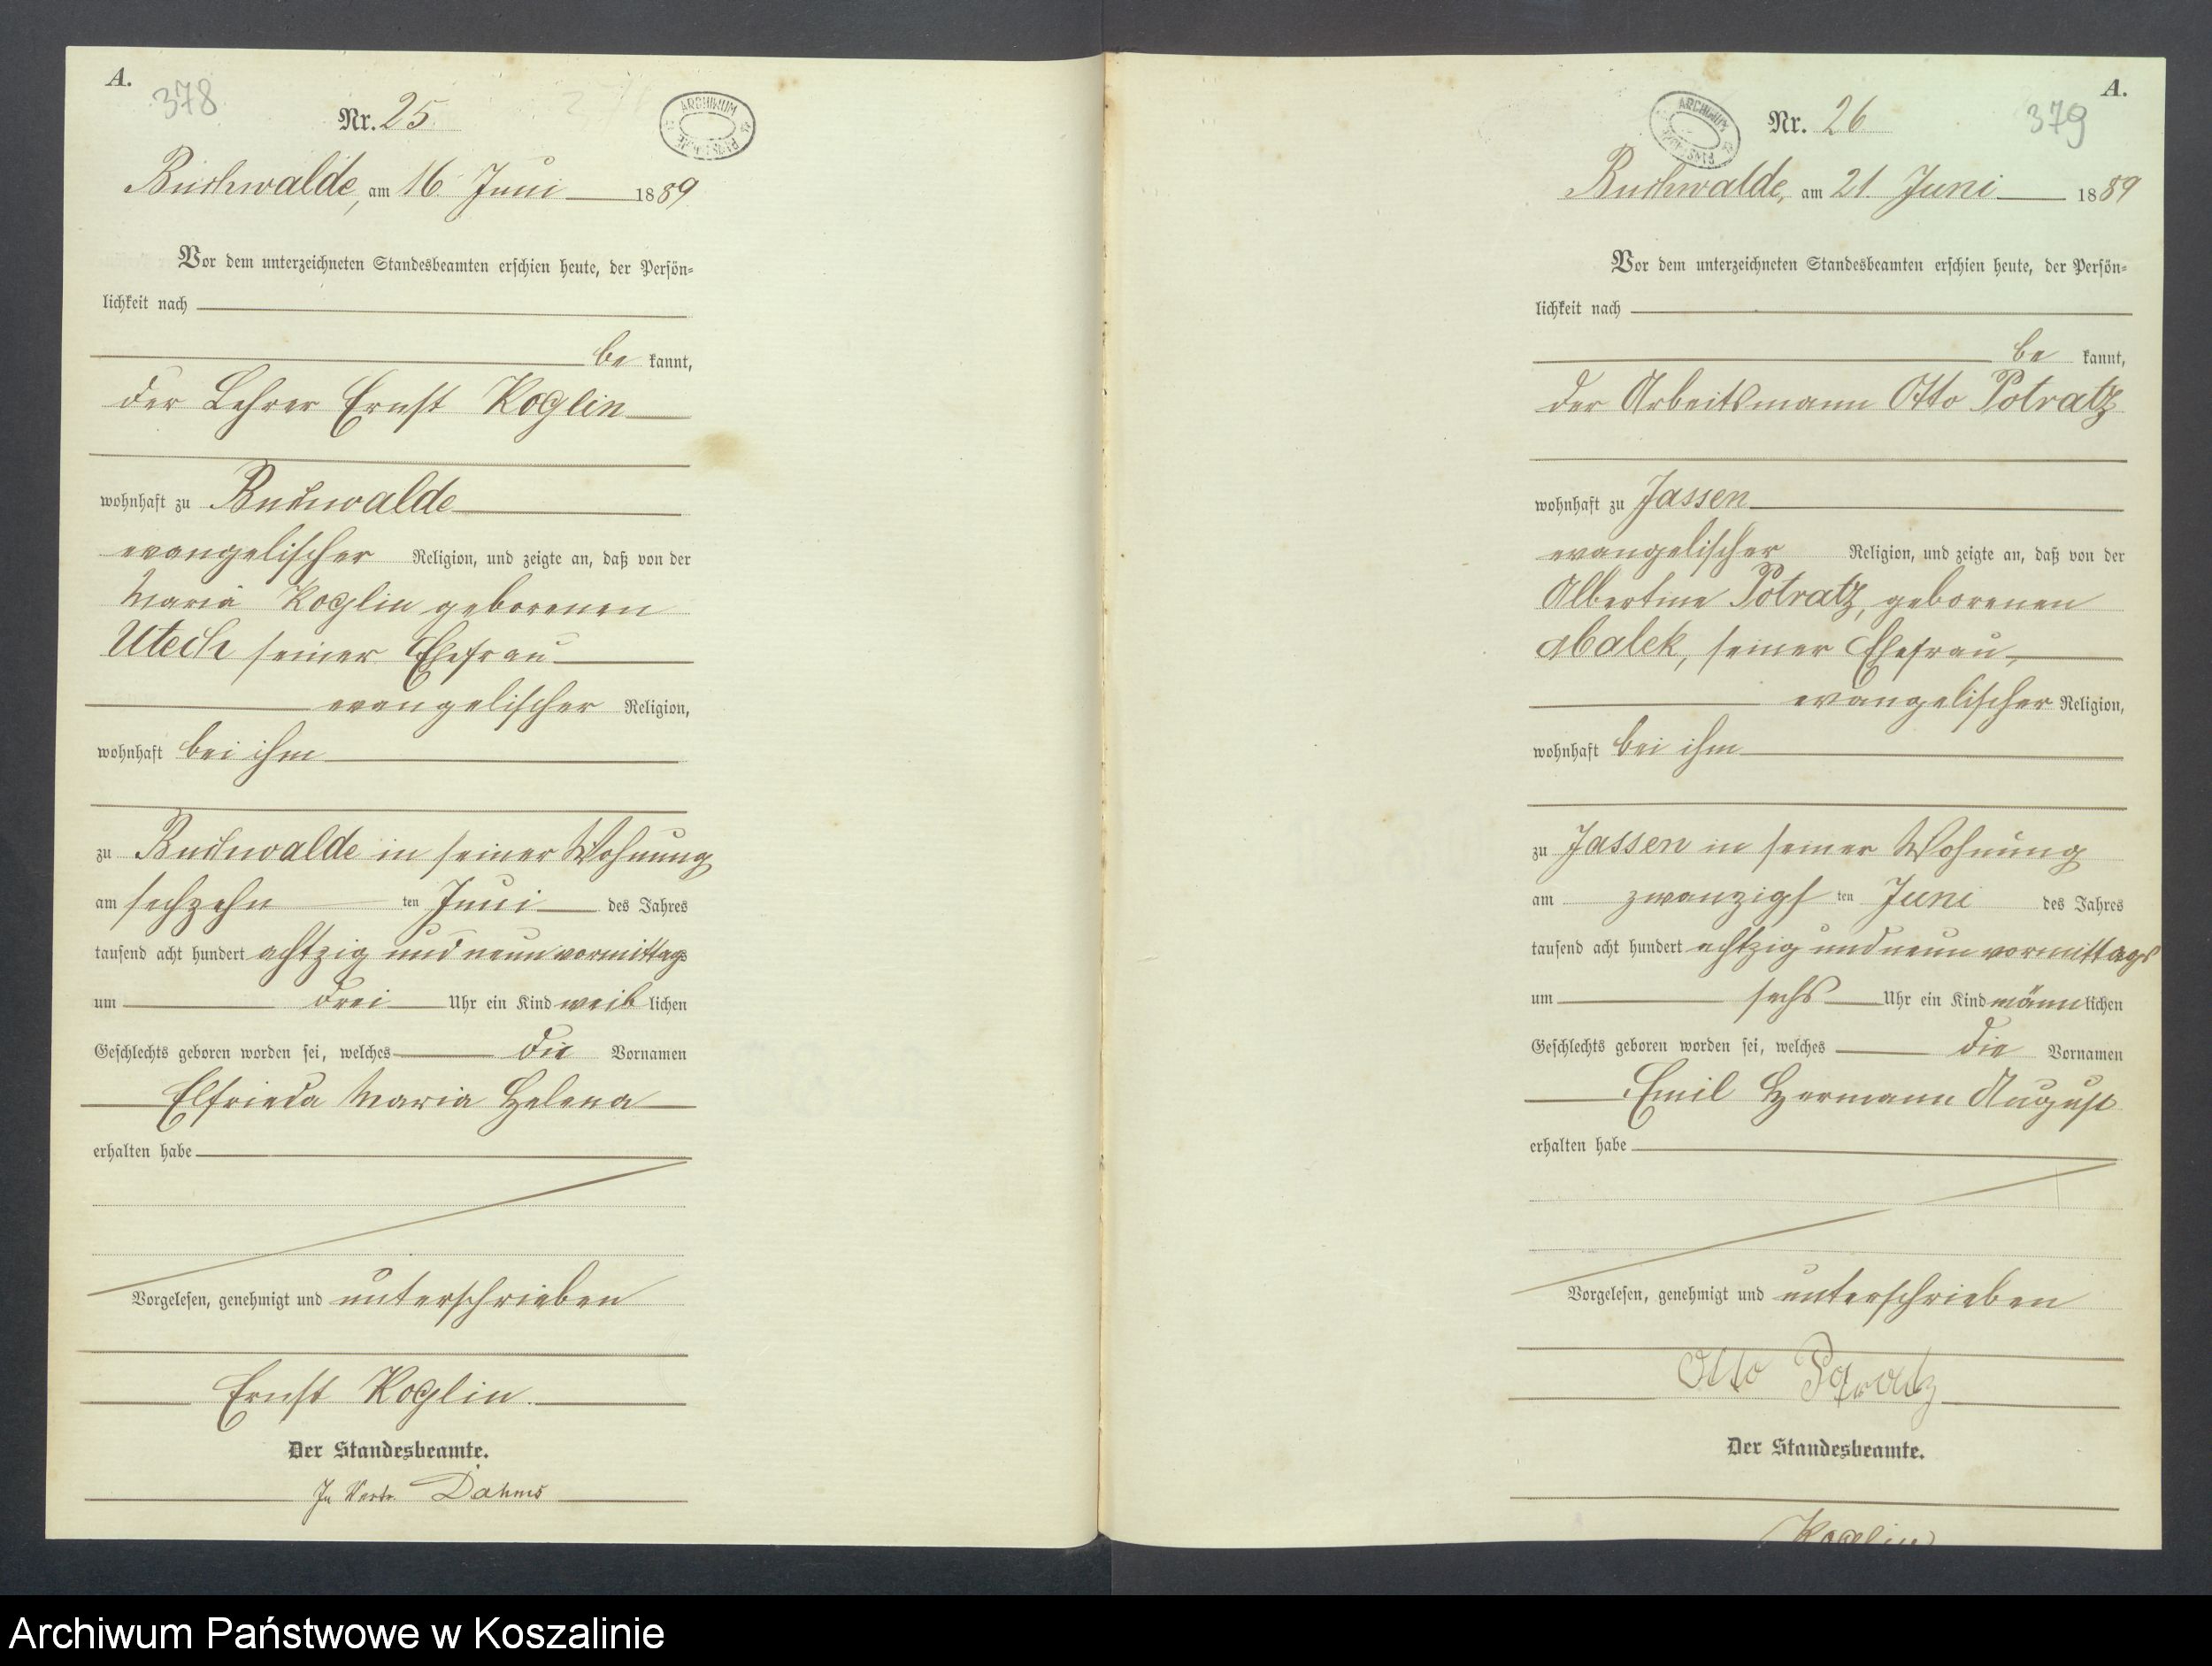 A.
378
Nr. 25
ARCHIWUM
Buchwalde, am 16 Juni 1889
Vor dem unterzeichneten Standesbeamten erschien heute, der Persön-
lichkeit nach
be kannt,
der Lehrer Ernst Koglin
wohnhaft zu Buchwalde
evangelischer Religion, und zeigte an, daß von der
Maria Koglin geborenen
Utech seiner Ehefrau
evangelischer Religion,
wohnhaft bei ihm
zu Buchwalde in seiner Wohnung
am sechzehn ten Juni des Jahres
tausend acht hundert achtzig und neun vormittags
um drei Uhr ein Kind weib lichen
Geschlechts geboren worden sei, welches die Vornamen
Elfrieda Maria Helena
erhalten habe
Vorgelesen, genehmigt und unterschrieben
Ernst Koglin.
Der Standesbeamte.
In Vertr. Dahms
A.
379
Nr. 26
ARCHIWUM
Buchwalde, am 21. Juni 1889
Vor dem unterzeichneten Standesbeamten erschien heute, der Persön-
lichkeit nach
be kannt,
der Arbeitsmann Otto Potratz
wohnhaft zu Jassen
evangelischer Religion, und zeigte an, daß von der
Albertine Potratz, geborenen
seiner Ehefrau,
evangelischer Religion,
wohnhaft bei ihm
zu Jassen in seiner Wohnung
am zwanzigs ten Juni des Jahres
tausend acht hundert achtzig und neun vormittags
um sechs Uhr ein Kind männ lichen
Geschlechts geboren worden sei, welches die Vornamen
Emil Hermann August
erhalten habe
Vorgelesen, genehmigt und unterschrieben
Otto Potratz
Der Standesbeamte.
Koglin
Archiwum Państwowe w Koszalinie